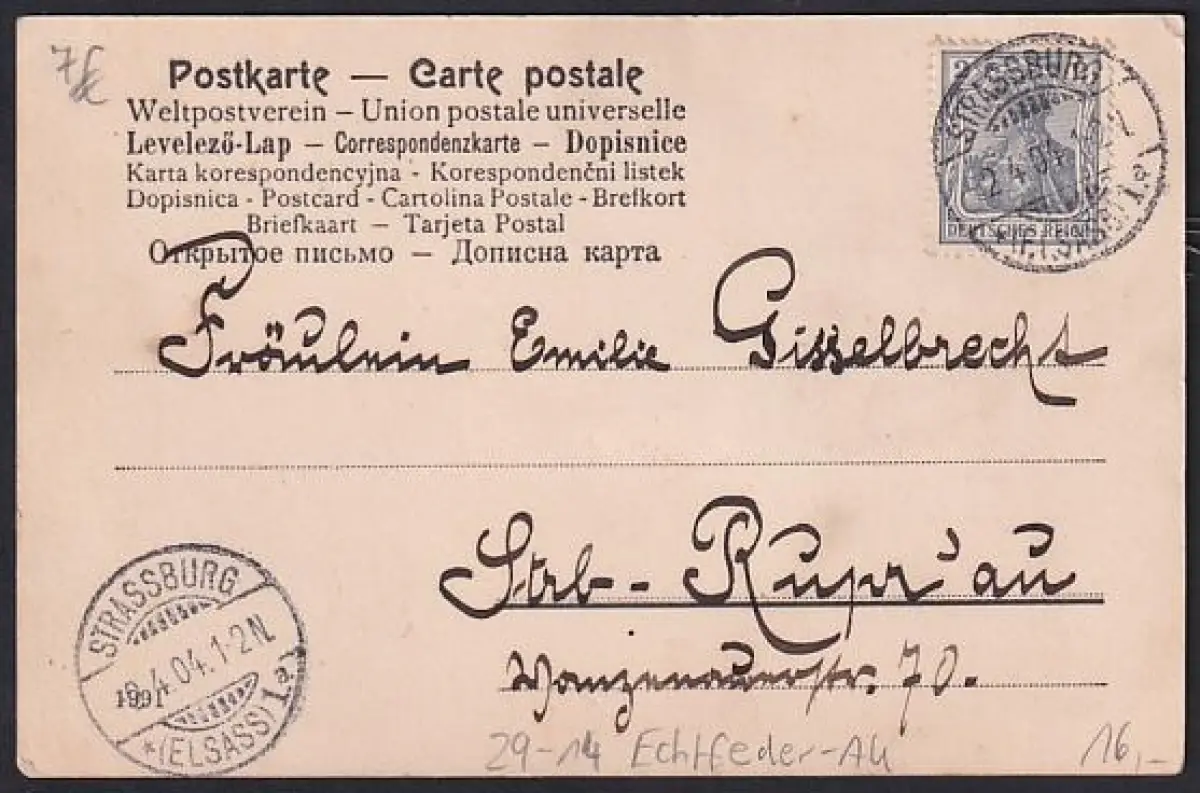 Postkarte — Carte postale
Weltpostverein – Union postale universelle
Levelező-Lap – Correspondenzkarte – Dopisnice
Karta korespondencyjna - Korespondenční listek
Dopisnica - Postcard - Cartolina Postale - Brefkort
Briefkaart – Tarjeta Postal
Открытое письмо — Дописна карта
STRASSBURG
2.4.04
*(ELSASS) 1.e
DEUTSCHES REICH
Fräulein Emilie Gisselbrecht
Strb - Rupr'au
Wanzenauerstr. 70.
STRASSBURG
.4.04.1-2N.
1991
*(ELSASS) 1.e
29-14 Echtfeder-Ak
16,-